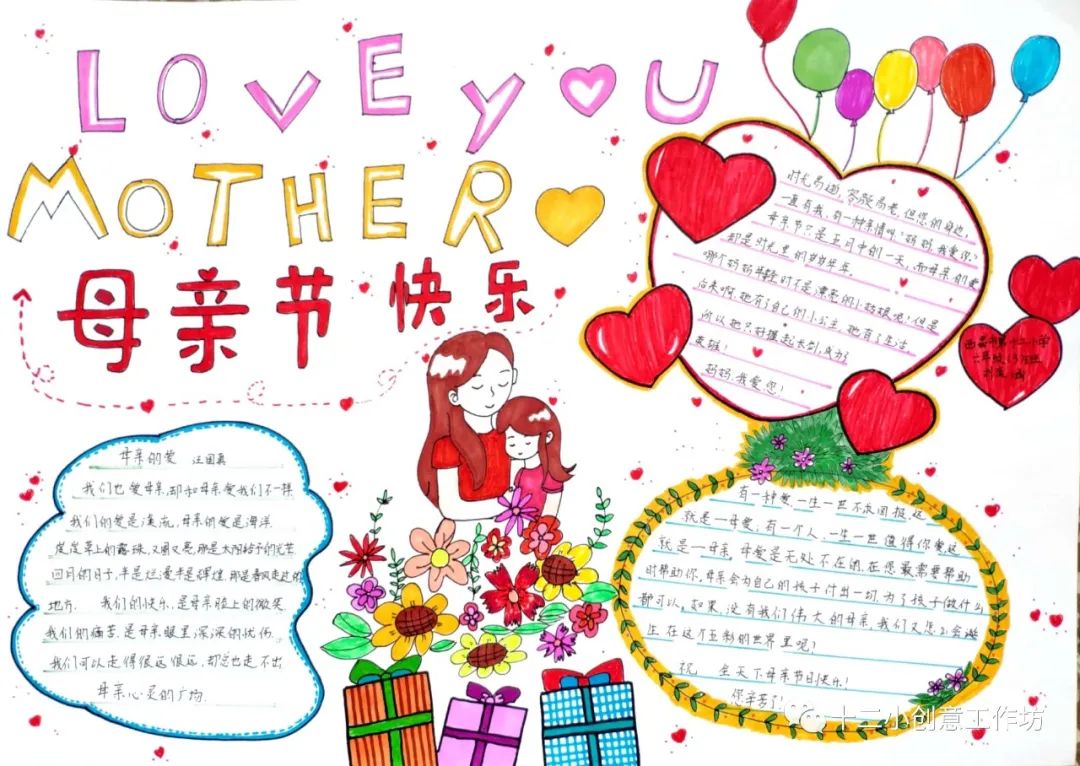 LOVE YOU
MOTHER
母亲节快乐
时光易逝,容颜易老,但您的身边,
一直有我,有一种亲情叫“妈妈,我爱你”
母亲节只是五月中的一天,而母亲的爱
却是时光里的岁岁年年。
哪个妈妈年轻时不是漂亮的小姑娘呢,但是
后来啊,她有了自己的小公主,她有了生活,
所以她只好握起长剑,成为了
英雄!
妈妈,我爱您!
小学
母亲的爱 汪国真
我们也爱母亲,却和母亲爱我们不一样
我们的爱是溪流,母亲的爱是海洋
芨芨草上的露珠,又圆又亮,那是太阳给予的光芒
四月的日子,半是烂漫半是辉煌,那是春风走过的
地方. 我们的快乐,是母亲脸上的微笑
我们的痛苦.是母亲眼里深深的忧伤.
我们可以走得很远很远,却总也走不出
母亲心灵的广场.
有一种爱,一生一世不求回报,这
就是一母爱;有一个人,一生一世值得你爱,这
就是一母亲。母爱是无处不在的,在您最需要帮助
时帮助你,母亲会为自己的孩子付出一切,为了孩子做什么
都可以。如果,没有我们伟大的母亲,我们又怎么会诞
生在这个五彩的世界里呢?
祝, 全天下母亲节日快乐!
您辛苦了!
十二小创意工作坊